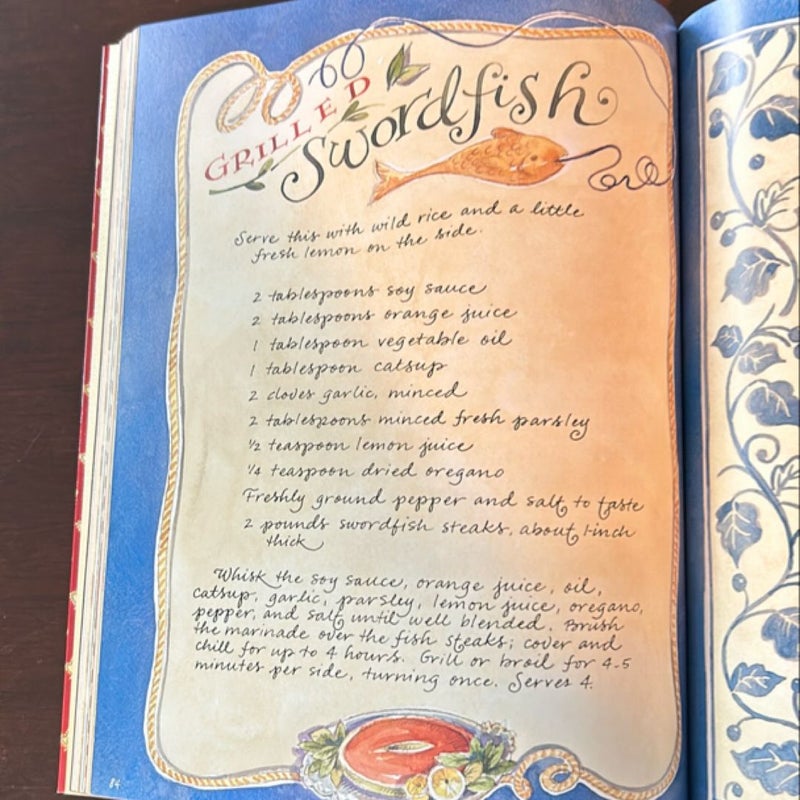 GRILLED
Swordfish
Serve this with wild rice and a little
fresh lemon on the side.
2 tablespoons soy sauce
2 tablespoons orange juice
1 tablespoon vegetable oil
1 tablespoon catsup
2 cloves garlic, minced
2 tablespoons minced fresh parsley
½ teaspoon lemon juice
¼ teaspoon dried oregano
Freshly ground pepper and salt to taste
2 pounds swordfish steaks, about 1-inch
thick
Whisk the soy sauce, orange juice, oil,
catsup, garlic, parsley, lemon juice, oregano,
pepper, and salt until well blended. Brush
the marinade over the fish steaks; cover and
chill for up to 4 hours. Grill or broil for 4-5
minutes per side, turning once. Serves 4.
84